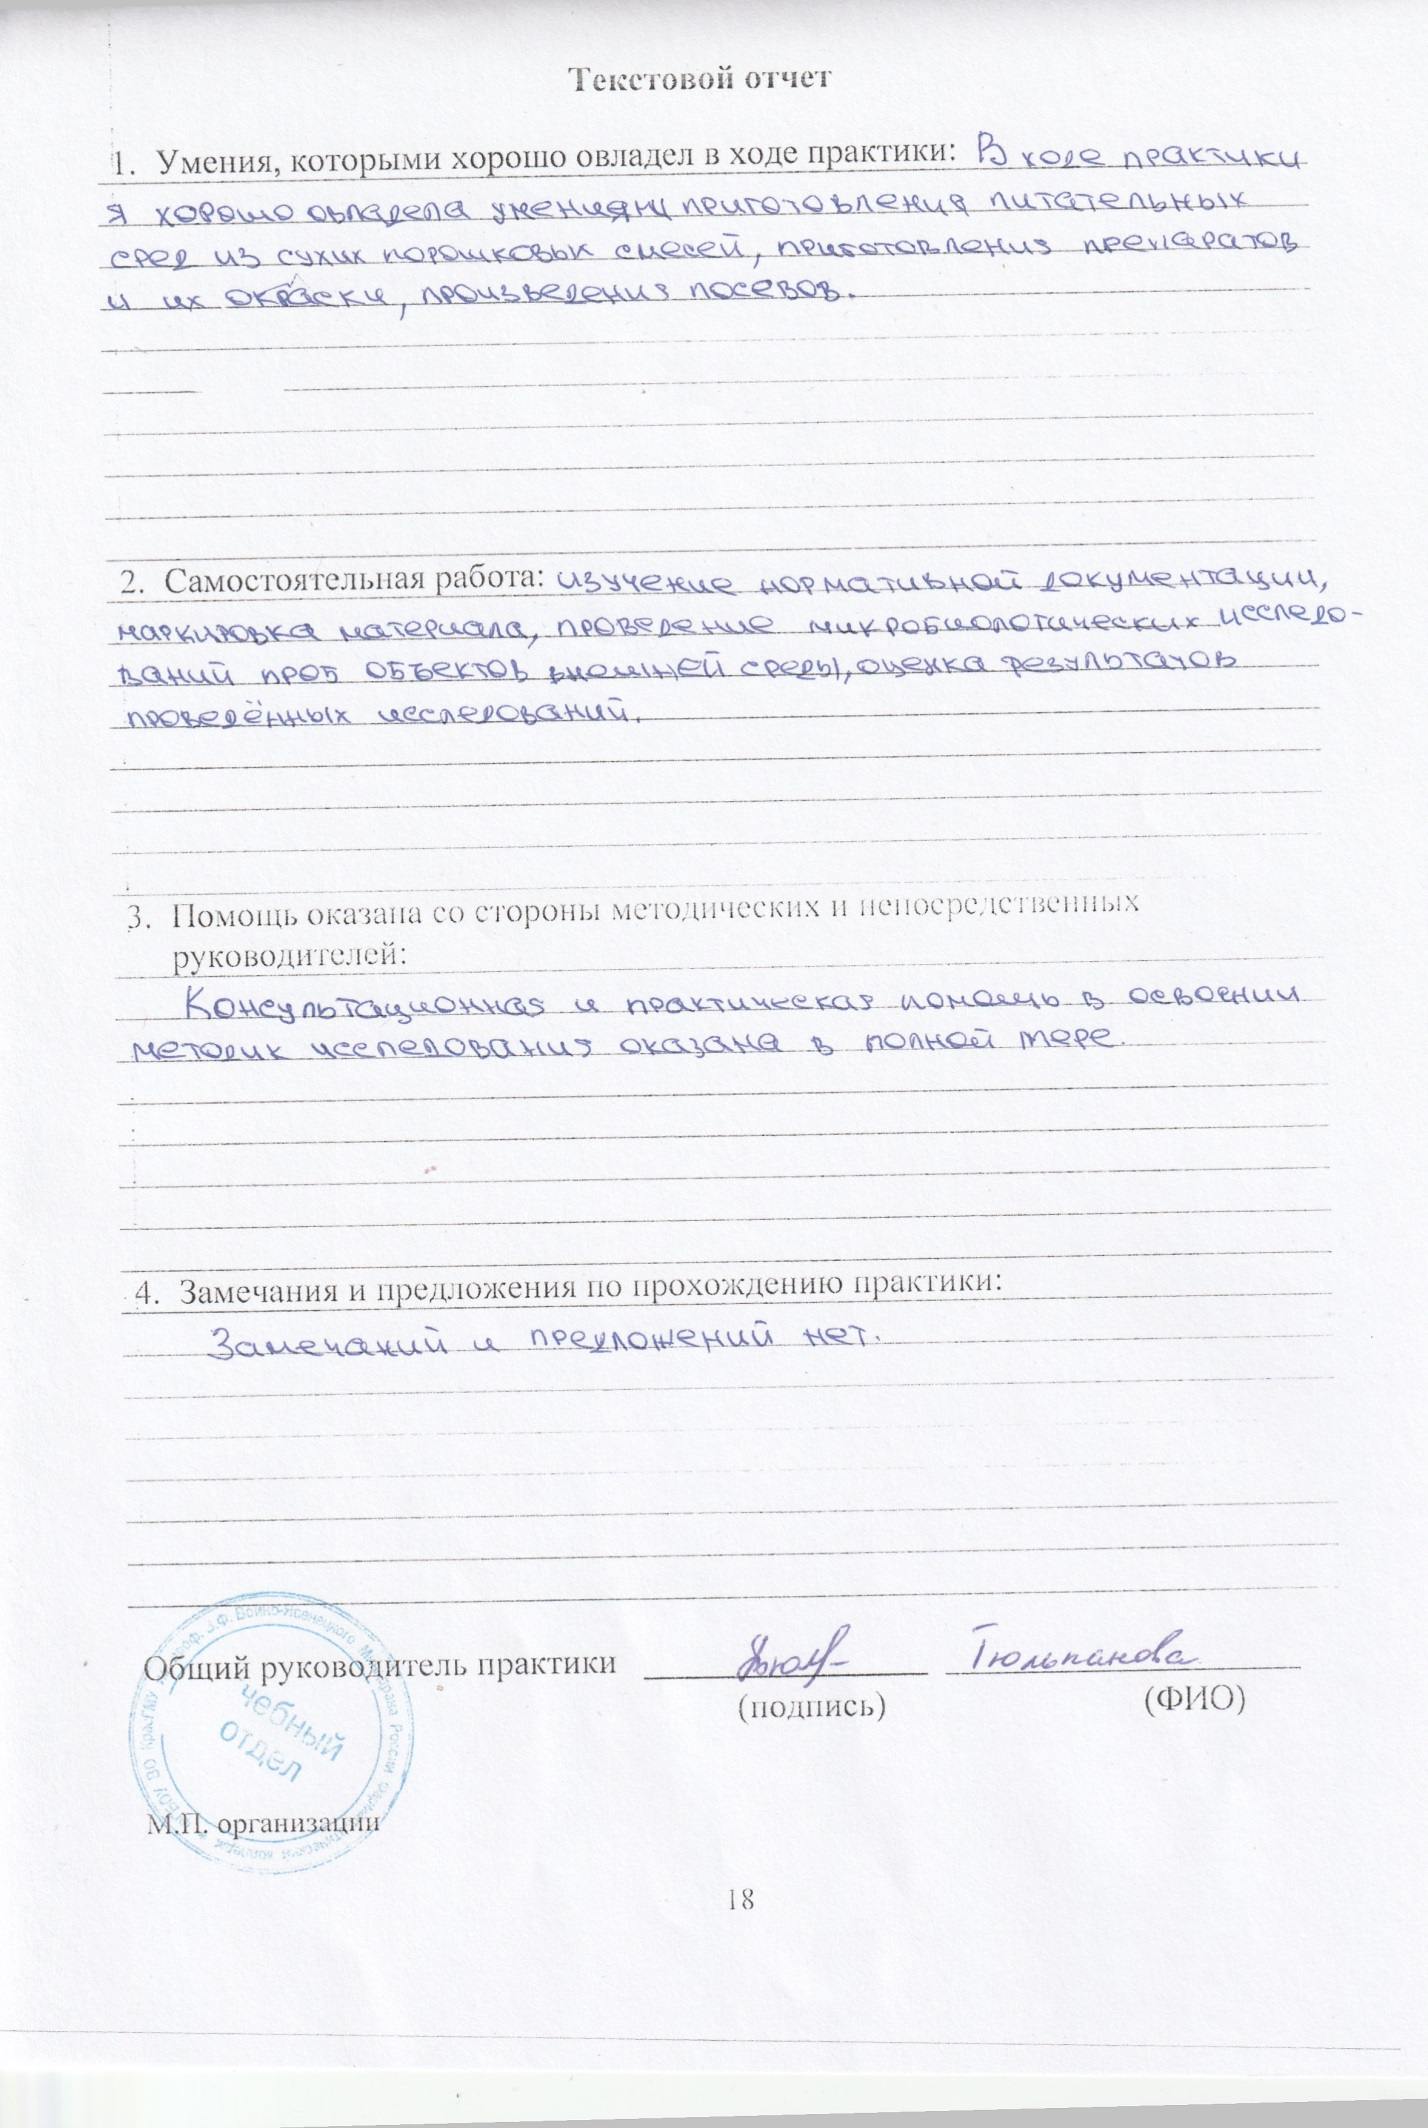 Текстовой отчет
1. Умения, которыми хорошо овладел в ходе практики: В ходе практики
я хорошо овладела умениями приготовления питательных
сред из сухих порошковых смесей, приготовления препаратов
и их окраски, произведения посевов.
2. Самостоятельная работа: изучение нормативной документации,
маркировка материала, проведение микробиологических исследо-
ваний проб объектов внешней среды, оценка результатов
проведённых исследований.
3. Помощь оказана со стороны методических и непосредственных
руководителей:
Консультационная и практическая помощь в освоении
методик исследования оказана в полной мере.
4. Замечания и предложения по прохождению практики:
Замечаний и предложений нет.
Общий руководитель практики Тюльпанова
(подпись) (ФИО)
проф. В.Ф. Войно-Ясенецкого России
чебный
отдел
М.П. организации
18